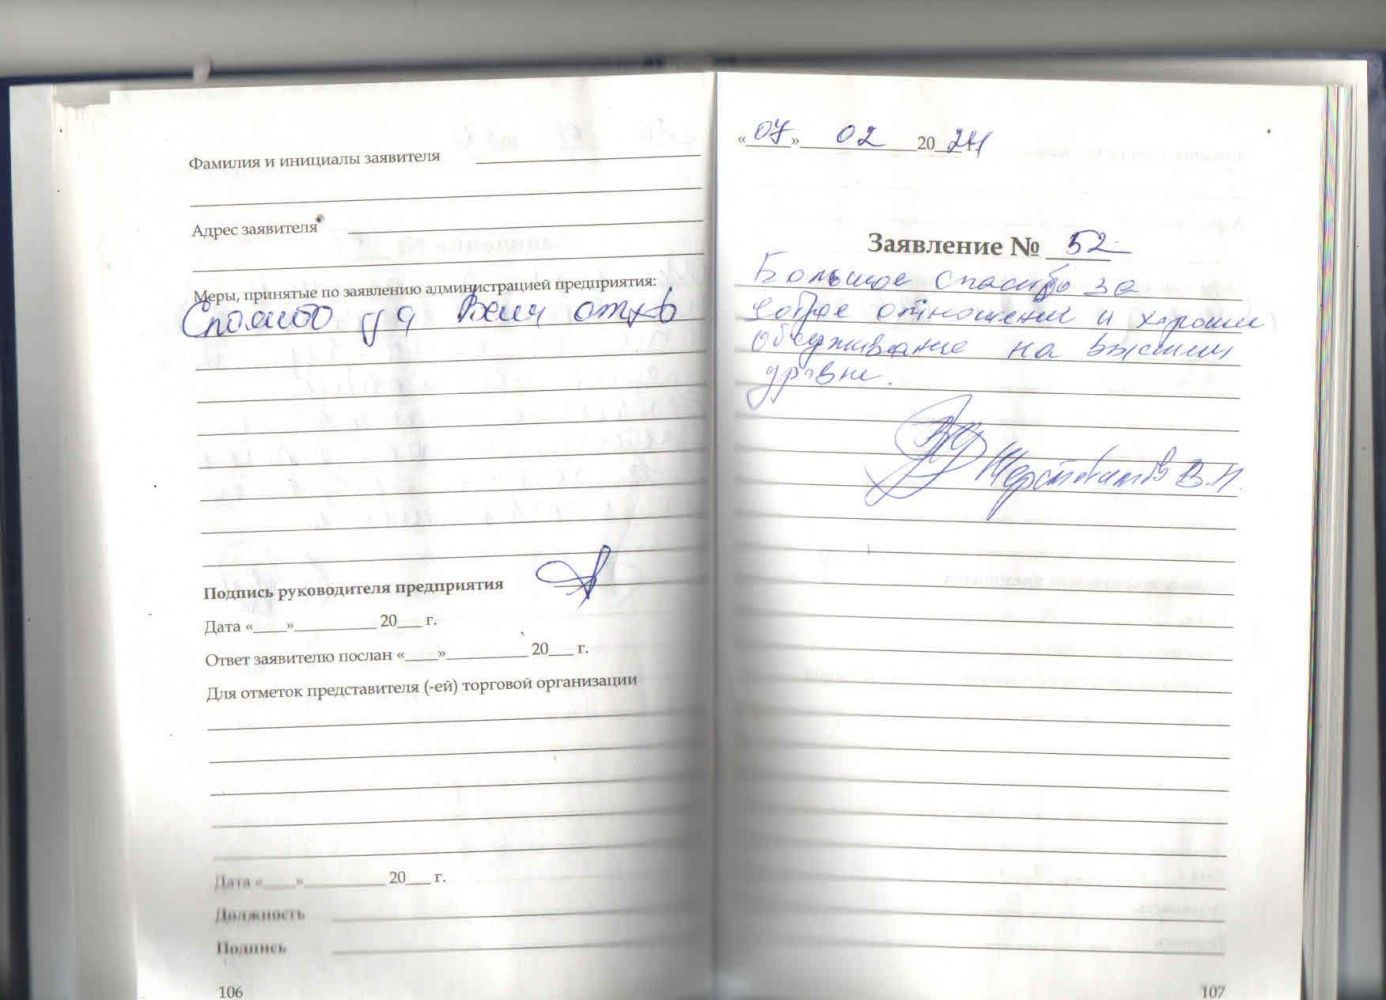 Фамилия и инициалы заявителя
Адрес заявителя
Меры, принятые по заявлению администрацией предприятия:
Спасибо за Ваш отзыв
Подпись руководителя предприятия
Дата «____»__________ 20___ г.
Ответ заявителю послан «____»__________ 20___ г.
Для отметок представителя (-ей) торговой организации
Дата «____»__________ 20___ г.
Должность
Подпись
106
«07» 02 2024
Заявление № 52
Большое спасибо за
доброе отношение и хорошее
обслуживание на высшем
уровне.
В.П.
107